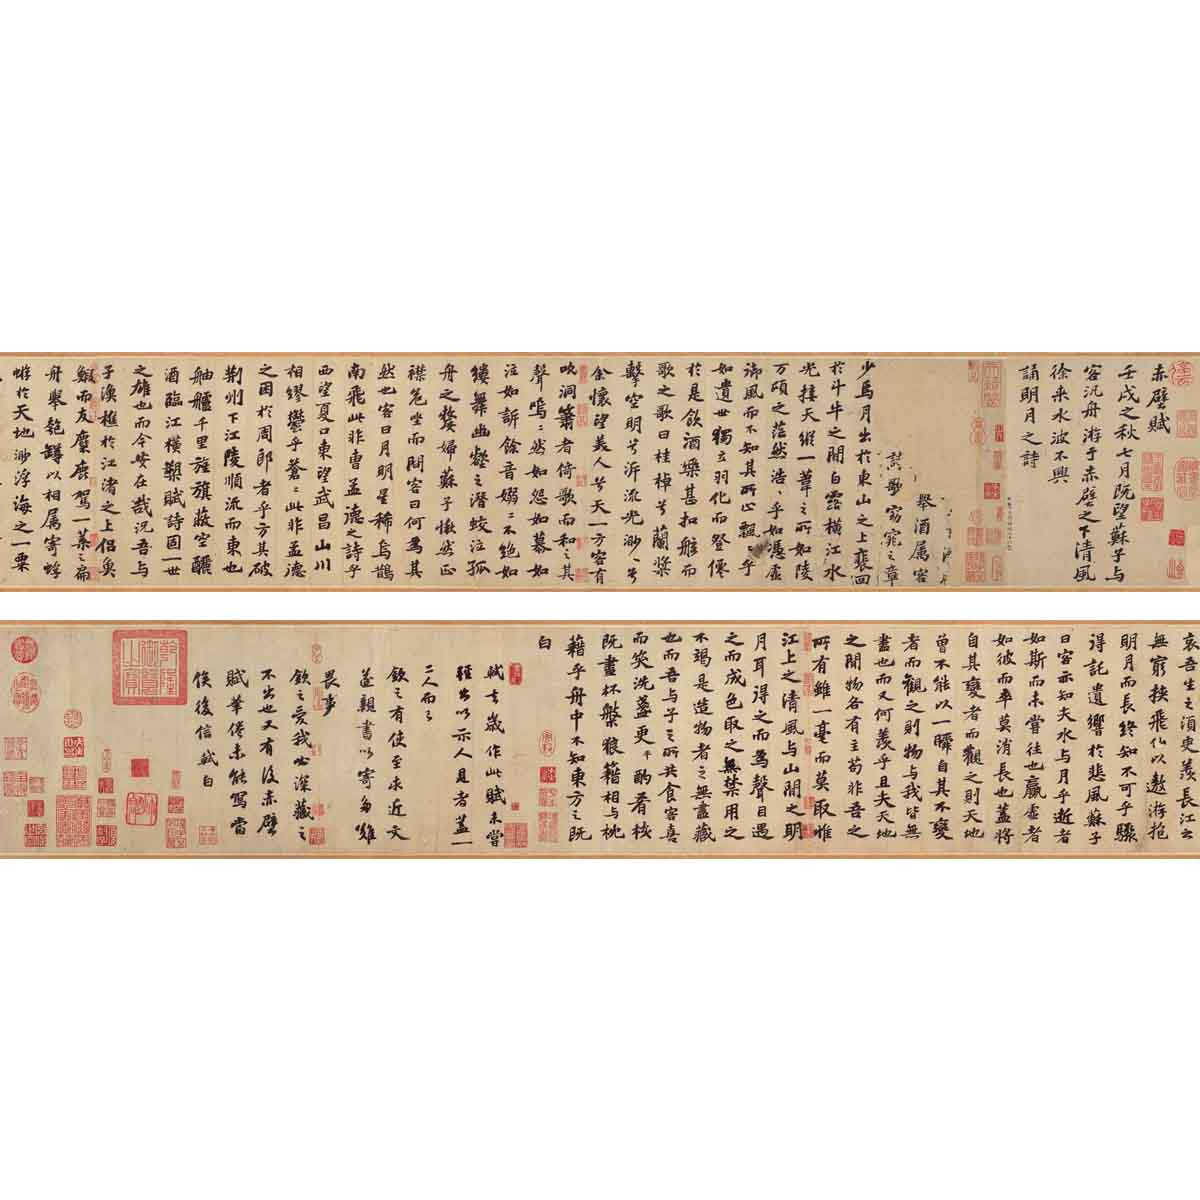 赤壁賦
壬戌之秋七月既望蘇子與
客汎舟游于赤壁之下清風
徐來水波不興
舉酒屬客
誦明月之詩
歌窈窕之章
少焉月出於東山之上裴回
於斗牛之間白露橫江水
光接天縱一葦之所如陵
万頃之茫然浩浩乎如馮虛
御風而不知其所止飄飄乎
如遺世獨立羽化而登僊
於是飲酒樂甚扣舷而
歌之歌曰桂棹兮蘭槳
擊空明兮泝流光渺渺兮
余懷望美人兮天一方客有
吹洞簫者倚歌而和之其
聲嗚嗚然如怨如慕如
泣如訴餘音嫋嫋不絕如
縷舞幽壑之潛蛟泣孤
舟之嫠婦蘇子愀然正
襟危坐而問客曰何為其
然也客曰月明星稀烏鵲
南飛此非曹孟德之詩乎
西望夏口東望武昌山川
相繆鬱乎蒼蒼此非孟德
之困於周郎者乎方其破
荊州下江陵順流而東也
舳艫千里旌旗蔽空釃
酒臨江橫槊賦詩固一世
之雄也而今安在哉況吾與
子漁樵於江渚之上侶魚
鰕而友麋鹿駕一葉之扁
舟舉匏罇以相屬寄蜉
蝣於天地渺浮海之一粟
哀吾生之須臾羨長江之
無窮挾飛仙以遨游抱
明月而長終知不可乎驟
得託遺響於悲風蘇子
曰客亦知夫水與月乎逝者
如斯而未嘗往也贏虛者
如彼而卒莫消長也蓋將
自其變者而觀之則天地
曾不能以一瞬自其不變
者而觀之則物與我皆無
盡也而又何羨乎且夫天地
之間物各有主苟非吾之
所有雖一毫而莫取惟
江上之清風與山間之明
月耳得之而為聲目遇
之而成色取之無禁用之
不竭是造物者之無盡藏
也而吾與子之所共食客喜
而笑洗盞更平酌肴核
既盡杯盤狼籍相與枕
藉乎舟中不知東方之既
白
軾去歲作此賦未嘗
輕出以示人見者蓋一
二人而已
欽之有使至求近文
遂親書以寄多難
畏事
欽之愛我必深藏之
不出也又有後赤壁
賦筆倦未能寫當
俟後信軾白
乾隆御覽之寶